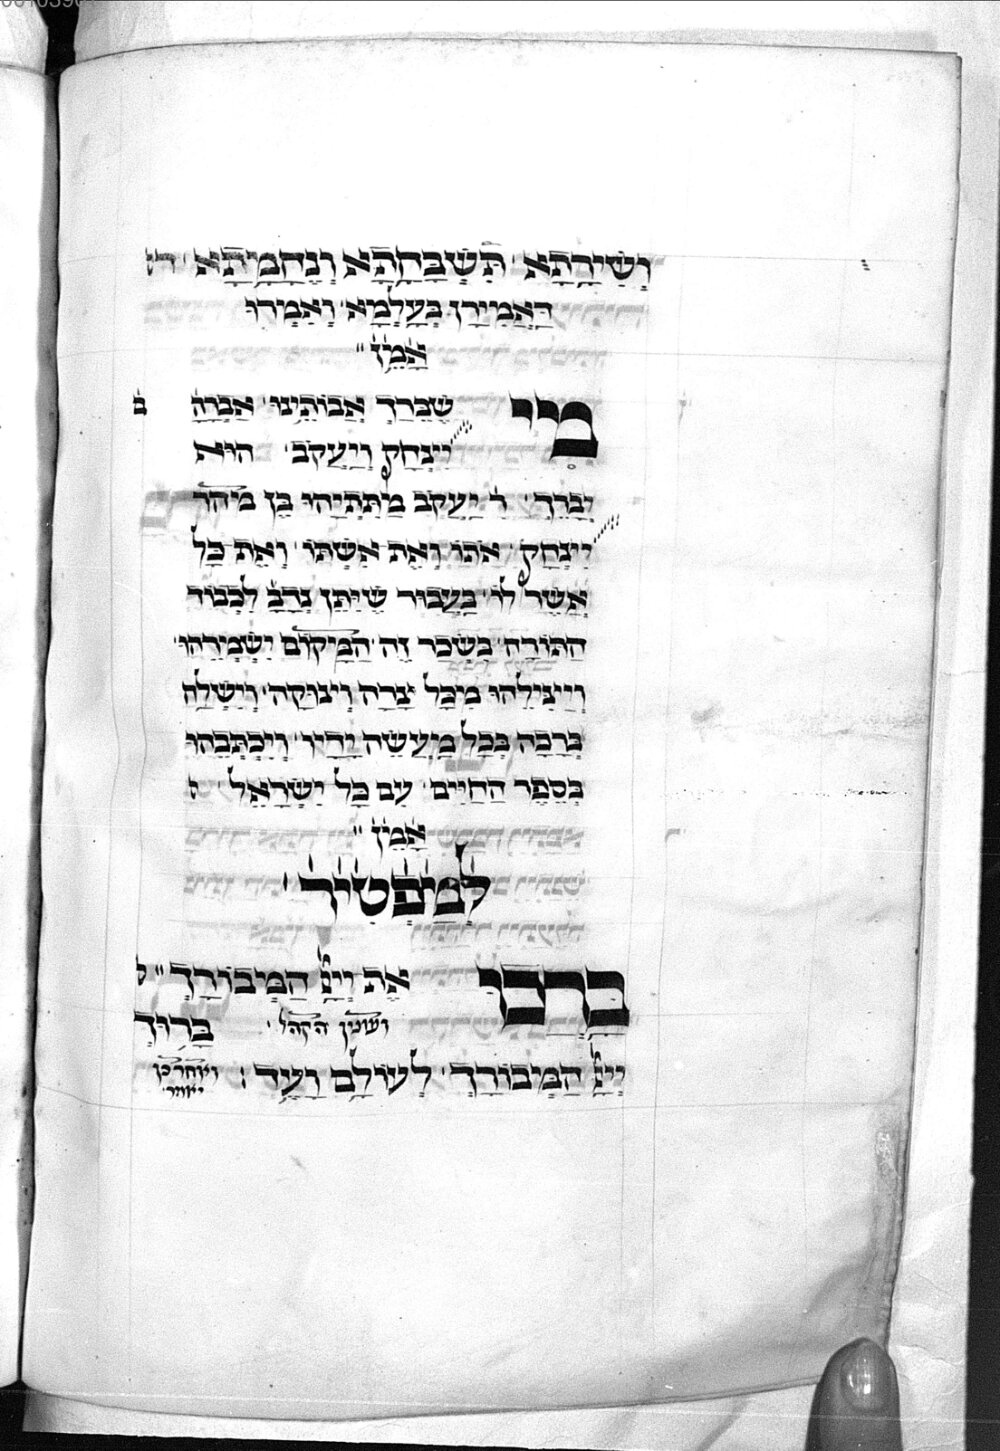 וְשִׁירָתָא תֻּשְׁבְּחָתָא וְנֶחָמָתָא דא
דַּאֲמִירָן בְּעָלְמָא וְאִמְרוּ
אָמֵן
מִי שֶׁבֵּרַךְ אֲבוֹתֵינוּ אַבְרָהָ ם
יִצְחָק וְיַעֲקֹב הוּא
יְבָרֵךְ ר יַעֲקֹב מַתִּתְיָהוּ בֶּן מֹהר
יִצְחָק אֹתוֹ וְאֶת אִשְׁתּוֹ וְאֶת כָּל
אֲשֶׁר לוֹ בַּעֲבוּר שֶׁיִּתֵּן נְדָבָ לִכְבוֹד
הַתּוֹרָה בִּשְׂכַר זֶה הַמָּקוֹם יִשְׁמְרֵהוּ
וְיַצִּילֵהוּ מִכָּל צָרָה וְצוּקָה וְיִשְׁלַח
בְּרָכָה בְּכָל מַעֲשֵׂה יָדָיו וְיִכְתְּבֵהוּ
בְּסֵפֶר הַחַיִּים עִם כָּל יִשְׂרָאֵל
אָמֵן
לַמַּפְטִיר
בָּרְכוּ אֶת יְיָ הַמְבוֹרָךְ
ועונין הקהל בָּרוּךְ
יְיָ הַמְּבוֹרָךְ לְעוֹלָם וָעֶד : ואחר כן
יאמר